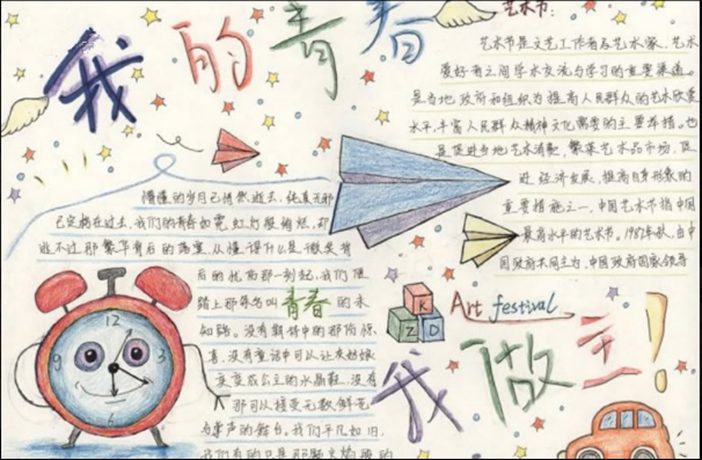 我的青春
艺术节:
艺术节是文艺工作者及艺术家、艺术
爱好者之间学术交流与学习的重要渠道。
是当地政府和组织为提高人民群众的艺术欣赏
水平,丰富人民群众精神文化需要的主要举措。也
是促进当地艺术消费,繁荣艺术品市场,促
进经济发展,提高自身形象的
重要措施之一,中国艺术节指中国
最高水平的艺术节。1987年秋,由中
国政府共同主办,中国政府国家领导
懵懂的岁月已悄然逝去,纯真无邪
已定格在过去,我们的青春如霓虹灯般绚烂,却
逃不过那繁华背后的落寞,从懂得什么是微笑背
后的忧伤那一刻起,我们便
踏上那条名叫青春的未
知路。没有期待中的那份惊
喜,没有童话中可以让灰姑娘
变成公主的水晶鞋,没有
那可以接受无数鲜花
与掌声的舞台。我们平凡如旧,
我们有的只是那颗火焰般的
12
3
6
9
K
Z
D
Art festival
我做主!